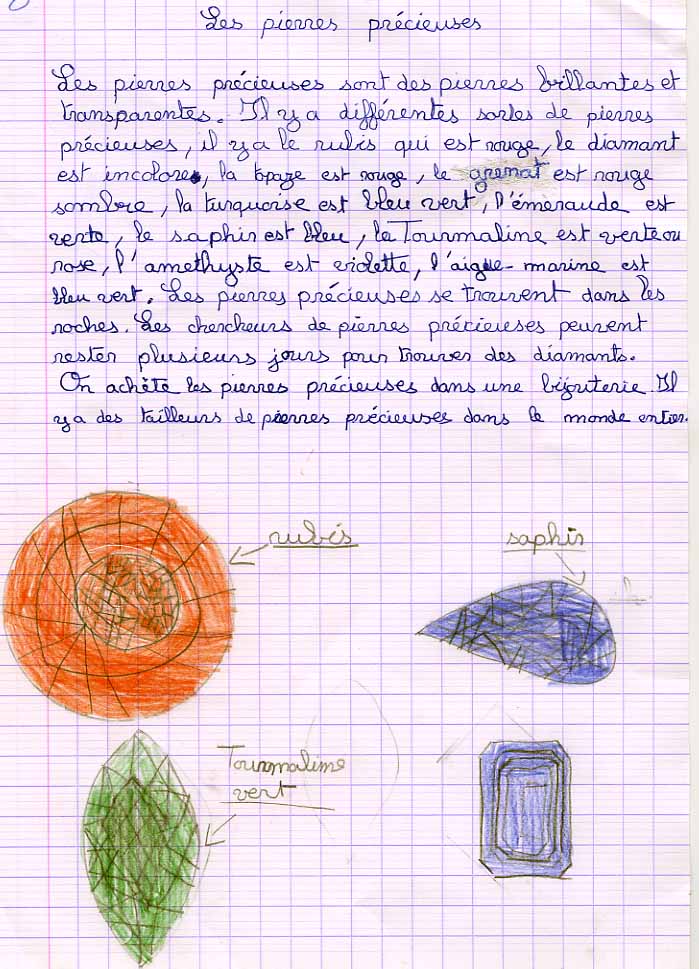 Les pierres précieuses
Les pierres précieuses sont des pierres brillantes et
transparentes. Il y a différentes sortes de pierres
précieuses, il y a le rubis qui est rouge, le diamant
est incolore, la topaze est rouge, le grenat est rouge
sombre, la turquoise est bleu vert, l'émeraude est
verte, le saphir est bleu, la Tourmaline est verte ou
rose, l'améthyste est violette, l'aigue-marine est
bleu vert. Les pierres précieuses se trouvent dans les
roches. Les chercheurs de pierres précieuses peuvent
rester plusieurs jours pour trouver des diamants.
On achète les pierres précieuses dans une bijouterie. Il
y a des tailleurs de pierres précieuses dans le monde entier.
rubis
saphir
Tourmaline
vert